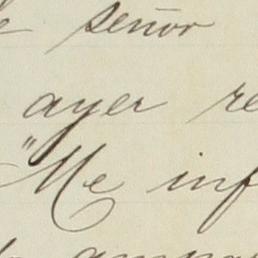 señor
ayer re
"Me inf